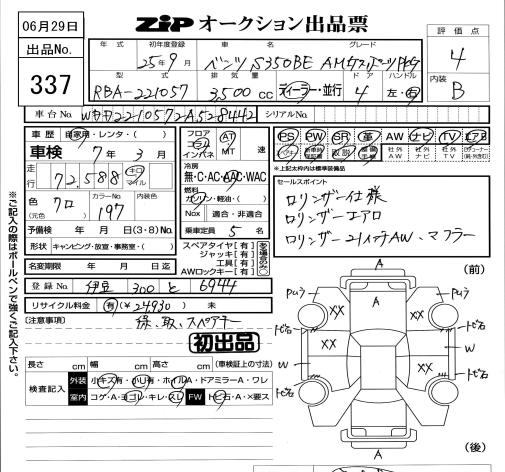 06月29日
ZIP オークション出品票
出品No.
337
評価点
4
内装
B
年式 初年度登録 車名 グレード
25年9月 ベンツ S350BE AMGスポーツPKG
型式 排気量 ドア ハンドル
RBA-221057 3,500cc ディーラー・並行 4 左・右
車台No. WDD221057-2A528442 シリアルNo.
車歴 自家用・レンタ・( )
車検 7年3月
走行 72,588 キロ マイル
色 クロ (元色) カラーNo. 197 内装色
予備検 年 月 日(3・8)No.
形状 キャンピング・放宣・事務室・( )
名変期限 年 月 日迄
フロア コラム インパネ AT MT 速
冷房
無・C・AC・AAC・WAC
燃料
ガソリン・軽油・( )
Nox 適合・非適合
乗車定員 5名
スペアタイヤ[有]
ジャッキ[有]
工具[有]
AWロックキー[有]
PS PW SR 革 AW ナビ TV エアB
社外AW 社外ナビ 社外TV
*上記太枠内は標準装備品
セールスポイント
ロリンザー仕様
ロリンザーエアロ
ロリンザー21インチAW、マフラー
登録No. 伊豆 300 と 6944
リサイクル料金 有(¥24,930) 未
(注意事項) 保、取、スペアキー
初出品
長さ cm 幅 cm 高さ cm (車検証上の寸法)
検査記入 外装 小キズ有・小U有・ホイルA・ドアミラーA・ワレ
室内 コゲ・A・ヨゴレ・キレ・スレ FW トビ石・A・×要ス
※ご記入の際はボールペンで強くご記入下さい。
(前)
A
A
XX
XX
XX
トビ石
トビ石
トビ石
トビ石
W
W
A
A
(後)